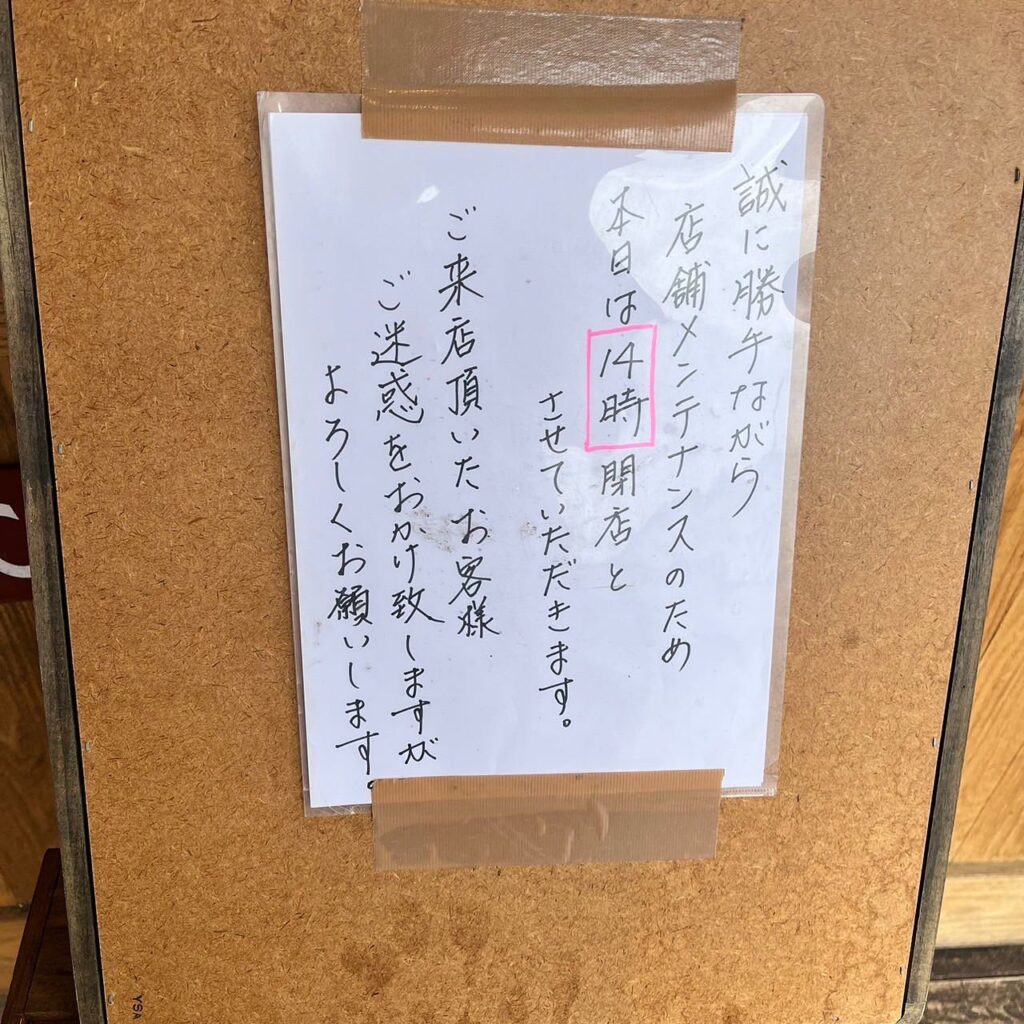 誠に勝手ながら
店舗メンテナンスのため
本日は14時閉店と
させていただきます。
ご来店頂いたお客様
ご迷惑をおかけ致しますが
よろしくお願いします。
YSA